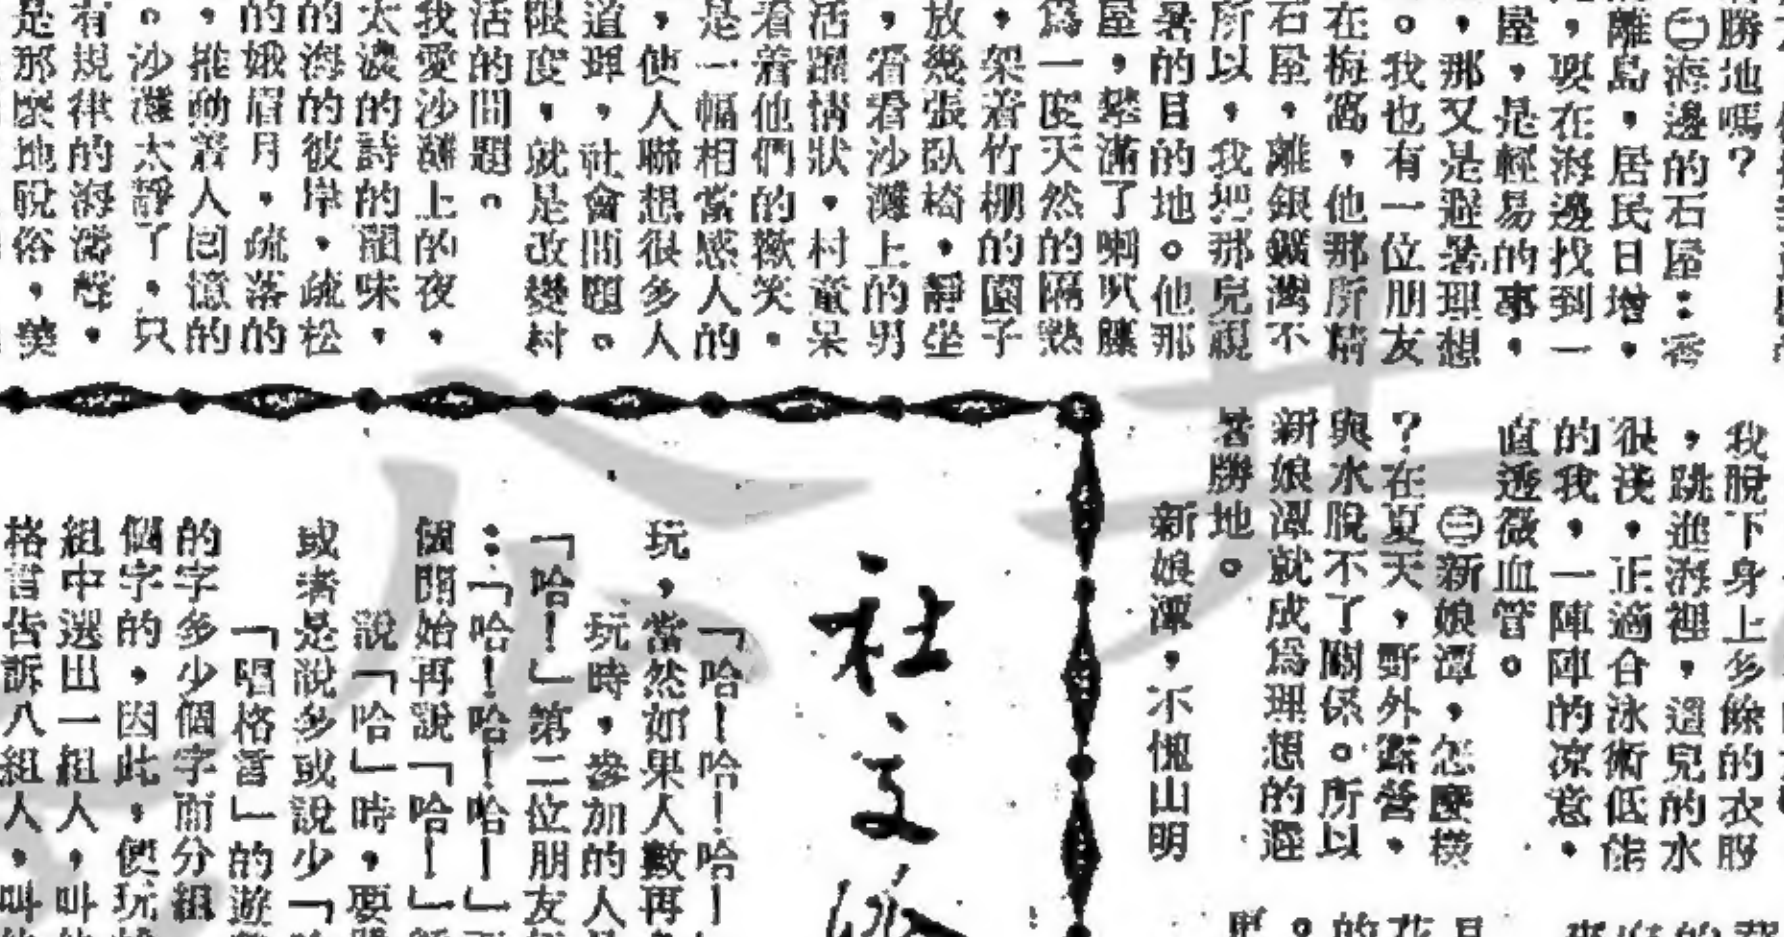 勝地嗎？
㊁海邊的石屋：香
離島，居民日增，
，要在海邊找到一
屋，是輕易的事，
，那又是避暑理想
。我也有一位朋友
在梅窩，他那所精
石屋，離銀鑛灣不
所以，我把那兒視
暑的目的地。他那
屋，攀滿了喇叭藤
爲一度天然的隔熱
，架着竹棚的園子
放幾張臥椅，靜坐
，看看沙灘上的男
活躍情狀，村童呆
看着他們的歡笑。
是一幅相當感人的
，使人聯想很多人
道理，社會問題。
限度，就是改變村
活的問題。
我愛沙灘上的夜，
太濃的詩的韻味，
的海的彼岸，疏松
的娥眉月，疏落的
，推動着人回憶的
。沙灘太靜了，只
有規律的海濤聲，
是那麽地脫俗，美
我脫下身上多餘的衣服
，跳進海裡，這兒的水
很淺，正適合泳術低能
的我，一陣陣的凉意，
直透微血管。
㊂新娘潭，怎麽樣
？在夏天，野外露營，
與水脫不了關係。所以
新娘潭就成爲理想的避
暑勝地。
新娘潭，不愧山明
社文
「哈！哈！哈！
玩，當然如果人數再
玩時，參加的人
「哈！」第二位朋友
：「哈！哈！哈！」
個開始再說「哈！」
說「哈」時，要
或者是說多或說少「
「唱格言」的遊
的字多少個字而分組
個字的，因此，便玩
組中選出一組人，叫
格言告訴八組人，叫